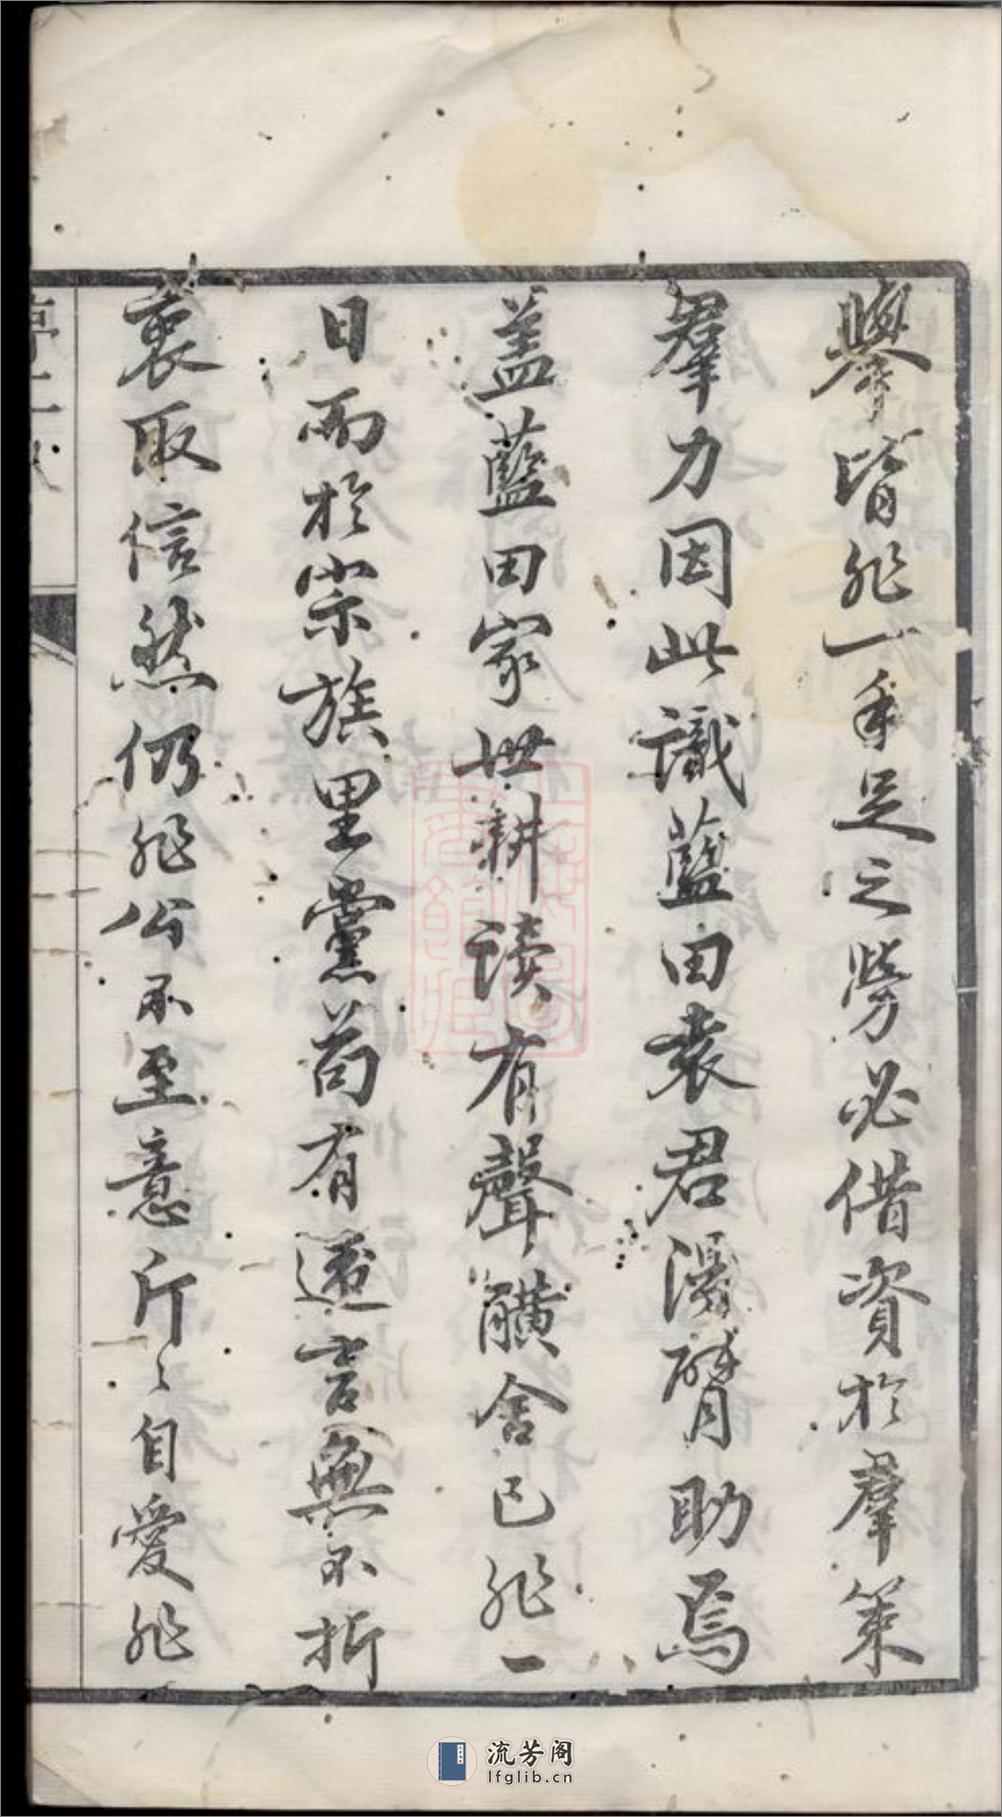 舉皆非一手足之勞必借資於羣策
羣力因此識藍田袁君漫臂助焉
蓋藍田家世耕讀有聲觵舍已非一
日而於宗族里黨苟有違言無不折
衷取信然仍非公不至意斤〻自愛非
上海圖書館藏
流芳阁
lfglib.cn